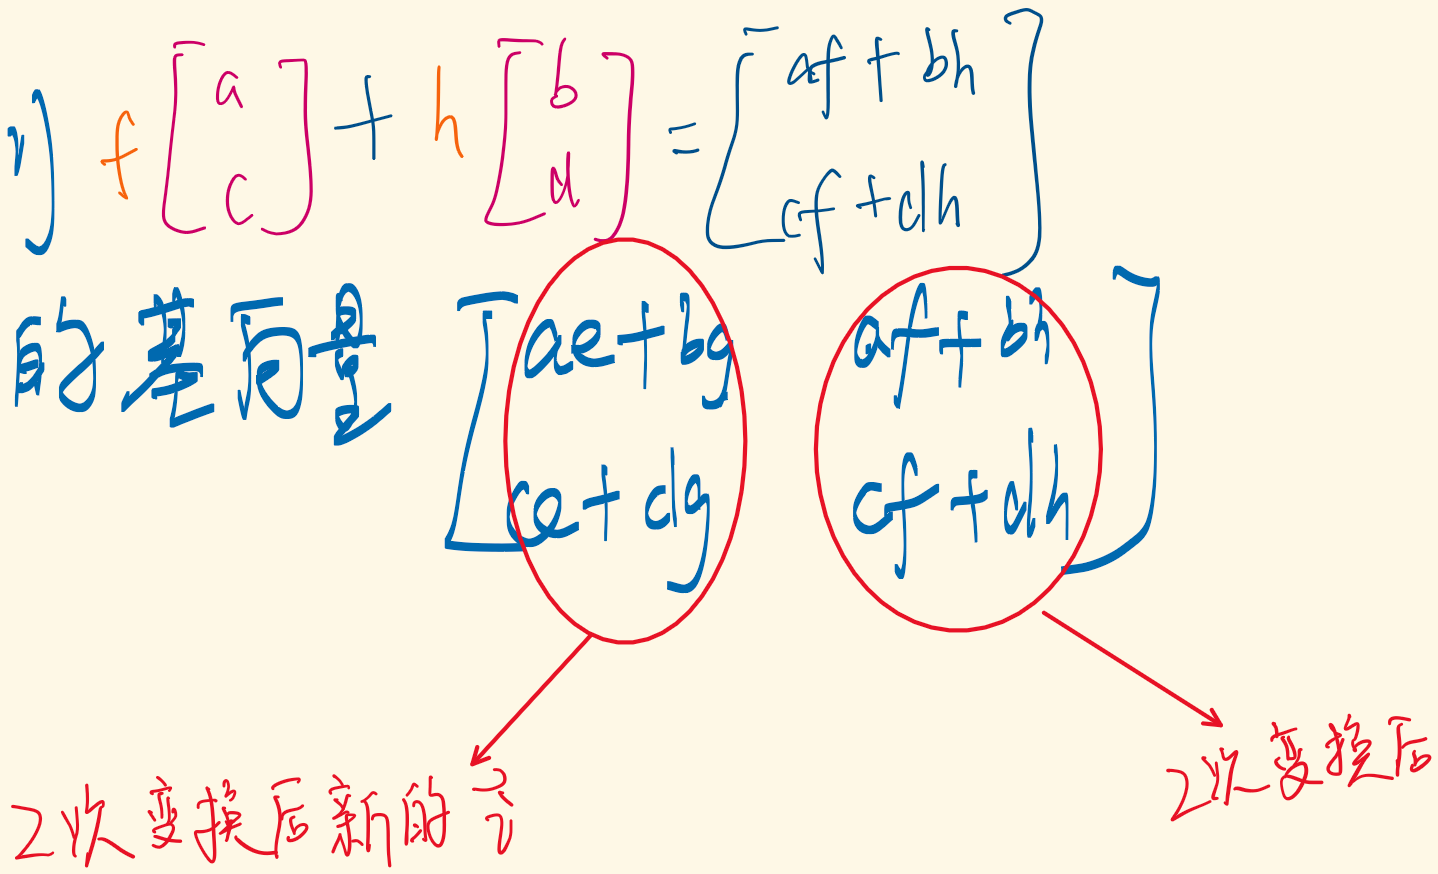 f [a c] + h [b d] = [af + bh cf + dh]
的基向量 [ae + bg af + bh
ce + dg cf + dh]
2次变换后新的 i
2次变换后